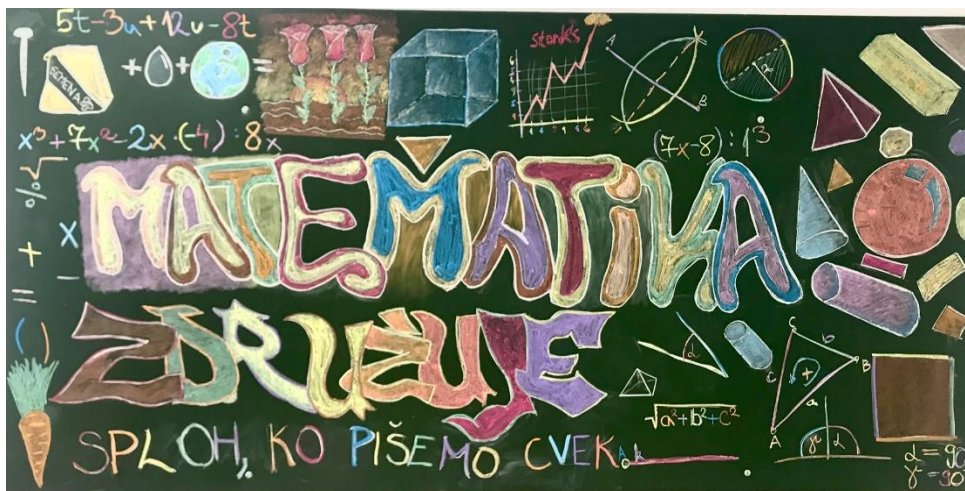 5t-3u+12u-8t
SEMENA
+ + =
Stonk's
A
B
r
x³+7x²-2x·(-4):8x
(7x-8):1³
%√
+ x
= -
()
MATEMATIKA
ZDRUŽUJE
SPLOH, KO PIŠEMO CVEK.
√a²+b²+c²
α
C
b
B
c
+
a
A
γ α
A k
α=90
γ=90